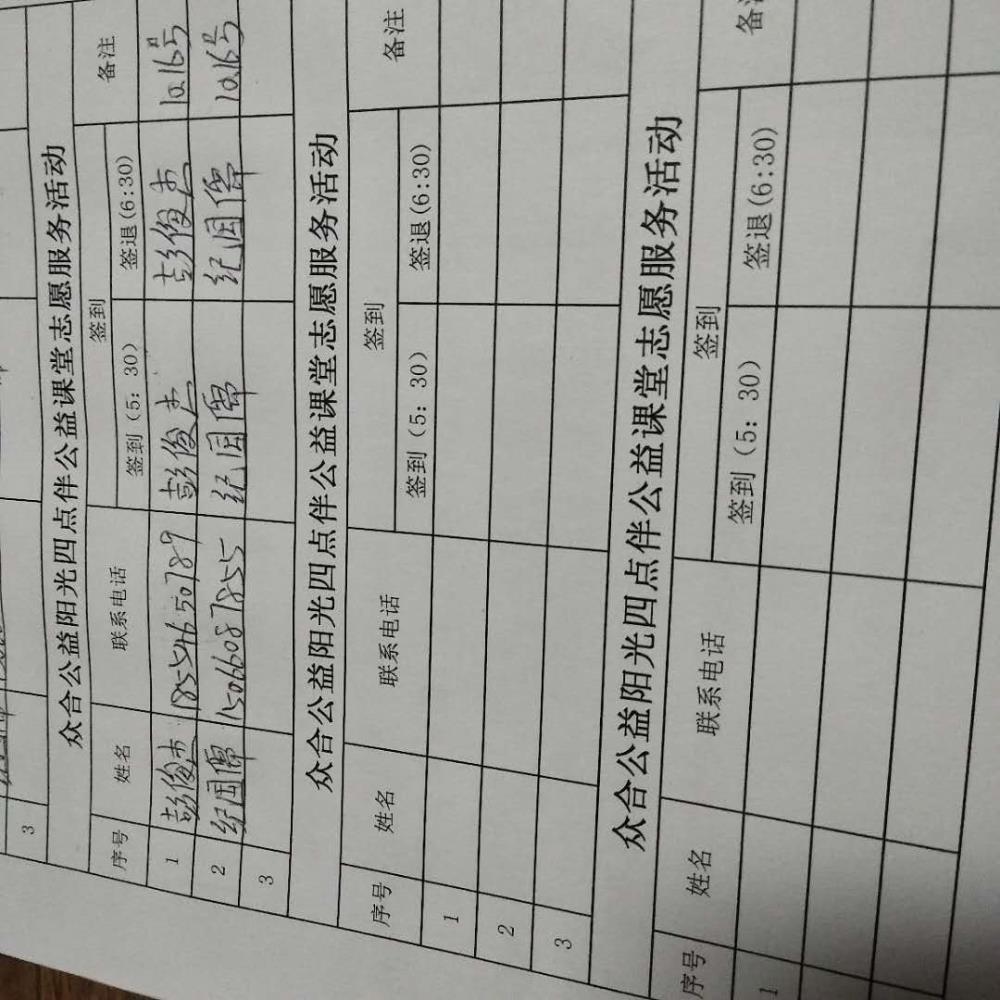 3
众合公益阳光四点伴公益课堂志愿服务活动
序号 姓名 联系电话 签到 备注
签到（5：30） 签退(6:30)
1 彭俊杰 18554650789 彭俊杰 彭俊杰 10.16号
2 纪国儒 15066087855 纪国儒 纪国儒 10.16号
3
众合公益阳光四点伴公益课堂志愿服务活动
序号 姓名 联系电话 签到 备注
签到（5：30） 签退(6:30)
1
2
3
众合公益阳光四点伴公益课堂志愿服务活动
序号 姓名 联系电话 签到 备
签到（5：30） 签退(6:30)
1